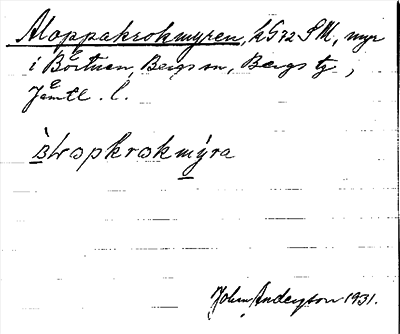 Aloppakrokmyren, k572 SM, myr
i Börtnen, Bergs sn, Bergs tg,
Jämtl. l.
àlɷpkrɷkmýra
John Anderson 1931.